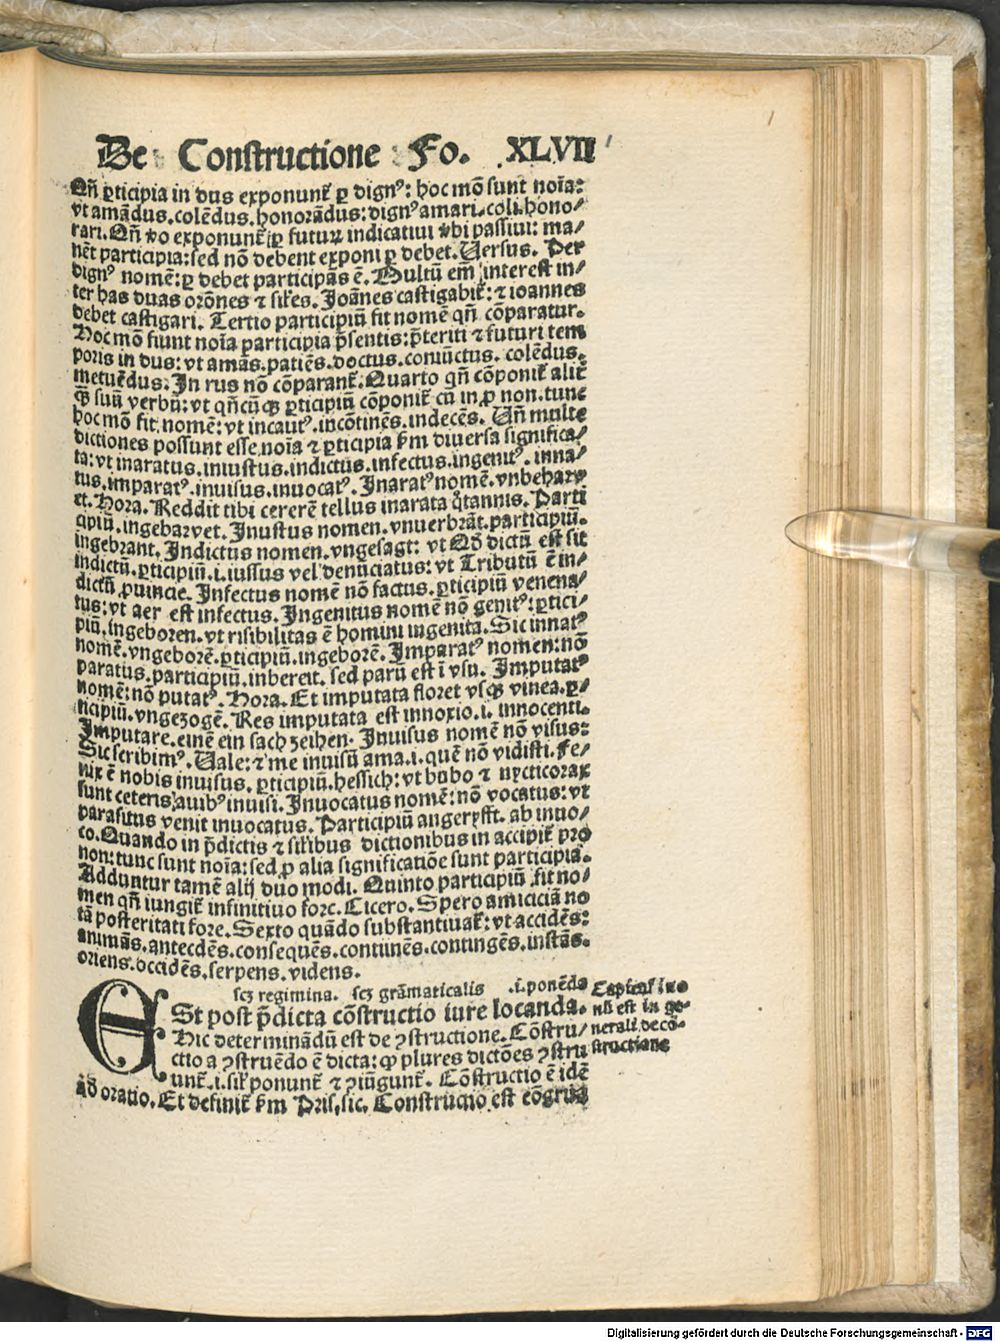 De Constructione Fo. XLVII
Qñ ꝑticipia in dus exponunt᷑ ꝑ dignꝰ: hoc mō sunt noīa:
vt amādus.colēdus.honorādus: dignꝰ amari.coli.hono/
rari. Qñ ꝟo exponunt᷑ ꝑ futurꝝ indicatiui ꝟbi passiui: ma/
nēt participia: sed nō debent exponi ꝑ debet. Uersus. Per
dignꝰ nomē: ꝑ debet participās ē. Multū em̄ interest in/
ter has duas orōnes ⁊ sil̄es. Joānes castigabit᷑: ⁊ ioannes
debet castigari. Tertio participiū fit nomē qñ cōparatur.
Hoc mō fiunt noīa participia p̄sentis: p̄teriti ⁊ futuri tem
poris in dus: vt amās.patiēs.doctus.coniūctus. colēdus.
metuēdus. In rus nō cōparant᷑. Quarto qñ cōponit᷑ alit᷑
ꝙ̄ suū verbū: vt qñcūqꝫ ꝑticipiū cōponit᷑ cū in ꝓ non.tunc
hoc mō fit nomē: vt incautꝰ.incōtinēs.indecēs. Uñ multe
dictiones possunt esse noīa ⁊ ꝑticipia ẜm diuersa significa/
ta: vt inaratus.iniustus.indictus.infectus.ingenitꝰ.inna/
tus.imparatꝰ.inuisus.inuocatꝰ. Inaratꝰ nomē.vnbehaw
et. Hora. Reddit tibi cererē tellus inarata qͥtannis. Parti
cipiū.ingeharvet. Inustus nomen.vnuerbrāt.participiū.
ingebrant. Indictus nomen.vngesagt: vt Qđ dictū est sit
indictū.ꝑticipiū.i.iussus vel denūciatus: vt Tributū ē in/
dictū ꝓuincie. Infectus nomē nō factus.ꝑticipiū venena/
tus: vt aer est infectus. Ingenitus nomē nō genitꝰ: ꝑtici/
piū.ingeboren.vt risibilitas ē homini ingenita. Sic innatꝰ
nomē.vngeborē.ꝑticipiū.ingeborē. Imparatꝰ nomen: nō
paratus.participiū.inbereit. sed parū est ī vsu. Imputatꝰ
nomē: nō putatꝰ. Hora. Et imputata floret vsqꝫ vinea.ꝑ/
ticipiū.vngezogē. Res imputata est innoxio.i. innocenti.
Imputare.einē ein sach zeihen. Inuisus nomē nō visus:
Sic scribimꝰ. Uale: ⁊ me inuisū ama.i.quē nō vidisti. Fe/
nix ē nobis inuisus. ꝑticipiū.hessich: vt bubo ⁊ nycticorax
sunt ceteris auibꝰ inuisi. Inuocatus nomē: nō vocatus: vt
parasitus venit inuocatus. Participiū angerȳfft. ab inuo/
co. Quando in p̄dictis ⁊ sil̄ibus dictionibus in accipit᷑ pro
non: tunc sunt noīa: sed ꝓ alia significatiōe sunt participia.
Adduntur tamē alij duo modi. Quinto participiū fit no/
men qñ iungit᷑ infinitiuo fore. Cicero. Spero amiciciā no
tā posteritati fore. Sexto quādo substantiuat᷑: vt accidēs:
animās.antecdēs.consequēs.continēs.contingēs.instās.
oriens.occidēs.serpens.videns.
scꝫ regimina. scꝫ grāmaticalis .i.ponēda
ESt post p̄dicta cōstructio iure locanda.
Hic determinādū est de ꝯstructione. Cōstru/
ctio a ꝯstruēdo ē dicta: ꝙ plures dictōes ꝯstru
unt᷑.i.sil̄ ponunt᷑ ⁊ ꝯiūgunt᷑. Cōstructio ē idē
qđ oratio. Et definit᷑ ẜm Pris. sic. Constructio est cōgrua
nli est in ge-
nerali de cō-
structione
Digitalisierung gefördert durch die Deutsche Forschungsgemeinschaft - DFG